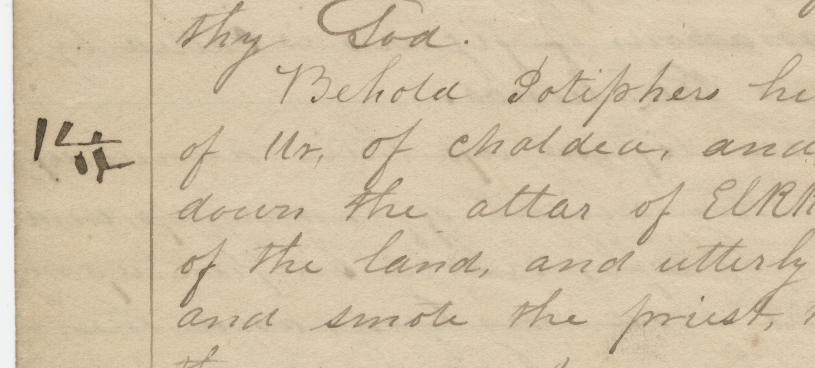 thy God.
Behold Potiphers hi
of Ur, of chaldea, and
down the altar of Elkk
of the land, and utterly
and smote the priest,